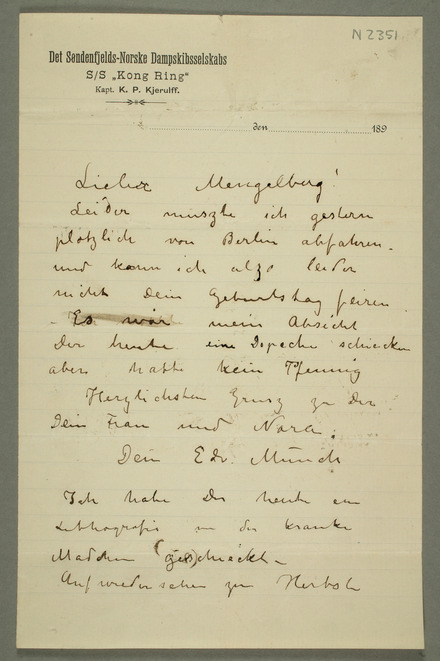 N 2351
Det Søndenfjelds-Norske Dampskibsselskabs
S/S „Kong Ring“
Kapt. K. P. Kjerulff.
den 189
Lieber Mengelberg!
Leider muszte ich gestern
plötzlich von Berlin abfahren –
und kann ich also leider
nicht dein Geburtstag feiren
– Es war mein Absicht
Der heute eine Depeche schicken
aber hatte kein Pfennig
Herzlichsten Grusz zu der
Dein Frau und Nora.
Dein Edv. Munch
Ich habe Der heute ein
Lithografie von der kranke
Mädchen geschickt –
Auf wiedersehen zu Herbste